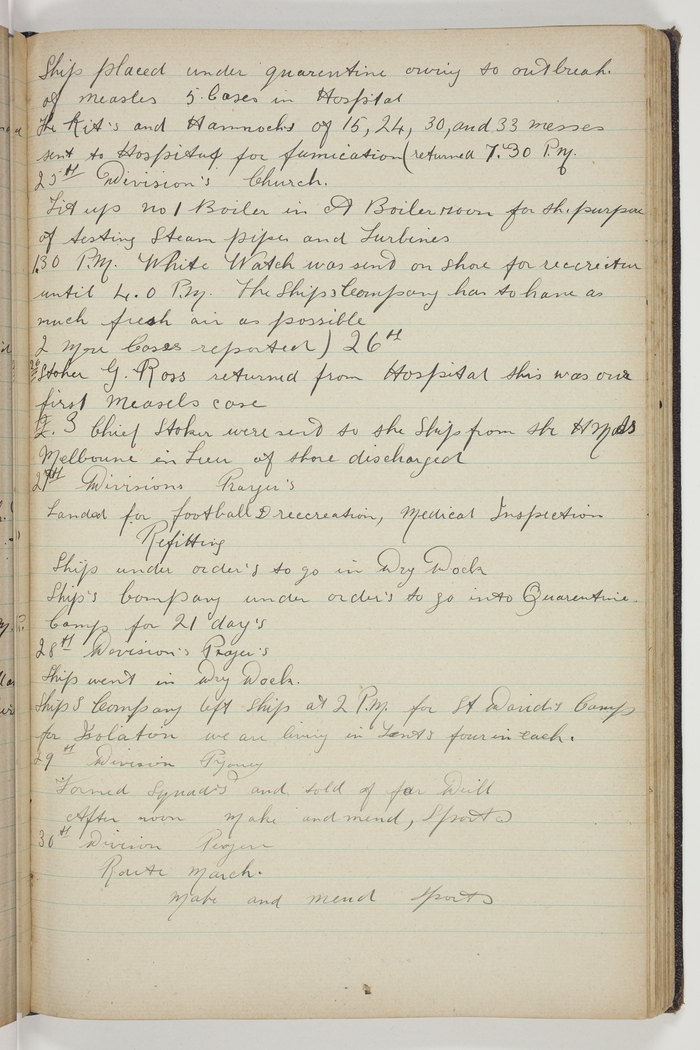 Ship placed under quarentine owing to outbreak
of measles 5 Cases in Hospital
The Kit's and Hammocks of 15, 24, 30, and 33 messes
sent to Hospital for fumication (returned 7.30 P.M.
25th Division's Church.
Lit up no 1 Boiler in A Boiler room for the purpose
of testing Steam pipes and Turbines
1.30 P.M. White Watch was send on shore for recreation
until 4.0 P.M. The Ships Company has to have as
much fresh air as possible
2 more Cases reported) 26th
Stoker G. Ross returned from Hospital this was our
first Measels case
3 Chief Stoker were send to the Ship from the HMAS
Melbourne in Lieu of those discharged
27th Divisions Prayer's
Landed for football & recreation, Medical Inspection
Refitting
Ship under order's to go in Dry Dock
Ship's Company under order's to go into Quarentine
Camp for 21 day's
28th Devision's Prayer's
Ship went in Dry Dock.
Ships Company left Ship at 2 P.M. for St David's Camp
for Isolation we are living in Tents four in each.
29th Division Prayers
Formed Squad's and told of for Drill
After noon make and mend, Sports
30th Division Prayers
Route March.
Make and mend Sports